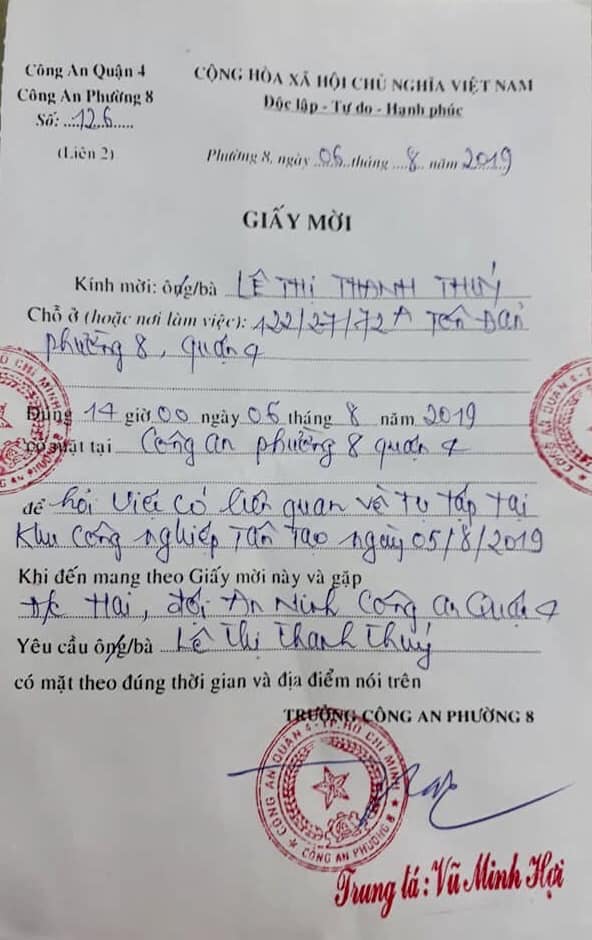 Công An Quận 4
Công An Phường 8
Số: ...126.....
(Liên 2)
CỘNG HÒA XÃ HỘI CHỦ NGHĨA VIỆT NAM
Độc lập - Tự do - Hạnh phúc
Phường 8, ngày 06 tháng ...8.. năm 2019
GIẤY MỜI
Kính mời: ông/bà LÊ THỊ THANH THUÝ
Chỗ ở (hoặc nơi làm việc): 122/27/72A Tôn Đản
phường 8, quận 4
Đúng 14 giờ 00 ngày 06 tháng 8 năm 2019
có mặt tại Công an phường 8 quận 4
để hỏi việc có liên quan về tụ tập tại
Khu Công nghiệp Tân Tạo ngày 05/8/2019
Khi đến mang theo Giấy mời này và gặp
đ/c Hai, đội An Ninh Công an Quận 4
Yêu cầu ông/bà Lê Thị Thanh Thuý
có mặt theo đúng thời gian và địa điểm nói trên
TRƯỞNG CÔNG AN PHƯỜNG 8
CÔNG AN QUẬN 4 - TP. HỒ CHÍ MINH
CÔNG AN PHƯỜNG 8
Trung tá: Vũ Minh Hợi